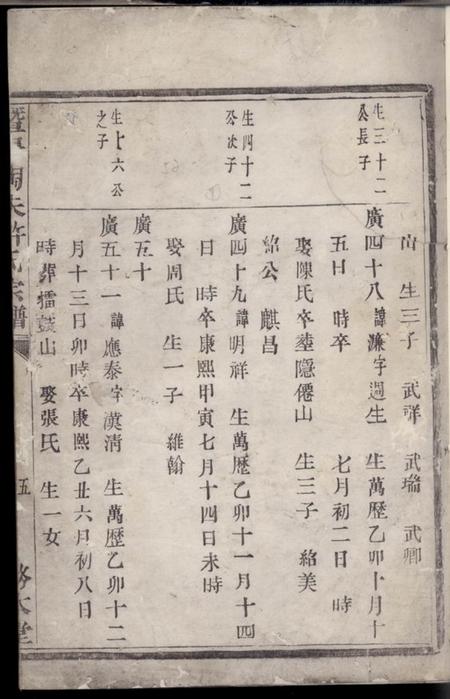 山 生三子 武祥 武瑞 武卿
生三十二
公長子
廣四十八 諱濂字週生 生萬歷乙卯十月十
五日 時卒 七月初二日 時
娶陳氏卒塟隠僊山 生三子 紹美
紹公 麒昌
生四十二
公次子
廣四十九 諱明祥 生萬歷乙卯十一月十四
日 時卒康熙甲寅七月十四日未時
娶周氏 生一子 維翰
廣五十
生七六公
之子
廣五十一 諱應泰字漢清 生萬歷乙卯十二
月十三日卯時卒康熙乙丑六月初八日
時葬擂鼓山 娶張氏 生一女
暨 湖 許氏宗譜
五
堂